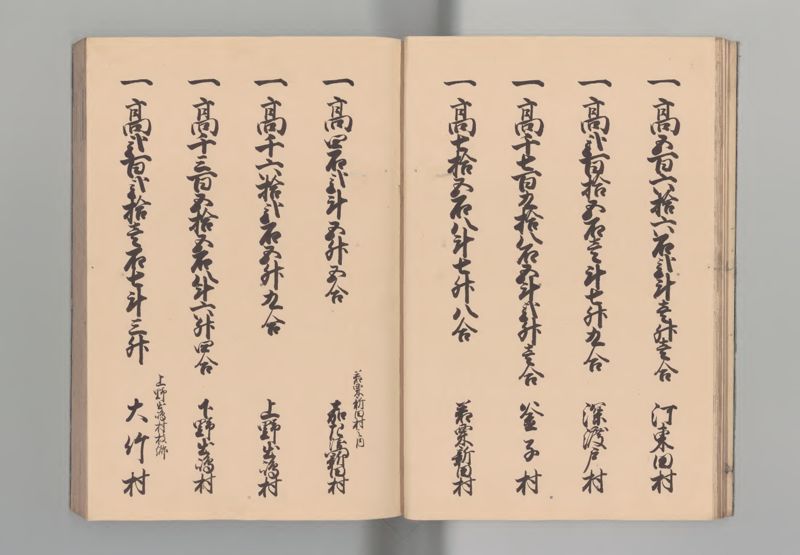 一高五百六拾六石弐斗壱升壱合 河東田村
一高弐百拾五石壱斗七升九合 深渡戸村
一高千七百九拾八石五斗弐升壱合 釜子村
一高七拾五石八斗七升八合 若栗新田村
若栗新田村之内
一高四石弐斗五升五合 新田村
一高千六拾弐石五升九合 上野出嶋村
一高千三百五拾五石八斗六升四合 下野出嶋村
上野出嶋村枝郷
一高弐百弐拾壱石七斗三升 大竹村